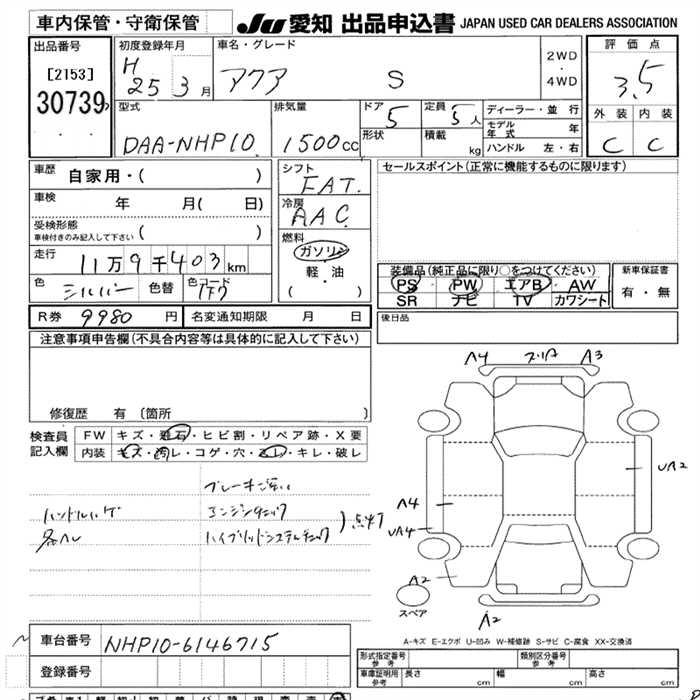 車内保管・守衛保管 JU 愛知 出品申込書 JAPAN USED CAR DEALERS ASSOCIATION
出品番号 初度登録年月 車名・グレード 2WD・4WD 評価点
[2153] H 25 3月 アクア S 3.5
30739 型式 排気量 ドア 5 定員 5人 ディーラー・並行 外装 内装
形状 積載 kg モデル年式 年
DAA-NHP10 1500cc ハンドル 左・右 C C
車歴 自家用・( ) シフト FAT. セールスポイント(正常に機能するものに限ります)
車検 年 月( 日) 冷房 AAC
受検形態 車検付きのみ記入して下さい ( ) 燃料
走行 11万9千403km ガソリン 装備品(純正品に限り○をつけてください) 新車保証書
色 シルバー 色替 色コード 軽・油 PS PW エアB AW 有・無
( ) SR ナビ TV カワシート
R券 9980円 名変通知期限 月 日 後日品
注意事項申告欄(不具合内容等は具体的に記入して下さい)
修復歴 有 〔箇所 〕
検査員記入欄 FW キズ・飛石・ヒビ割・リペア跡・X要
内装 キズ・汚レ・コゲ・穴・スレ・キレ・破レ
ハンドルハゲ エンジンチェック
ハイブリッドシステムチェック )点灯
A4 A3
UA2
A4
UA4
A2
スペア A2
A-キズ E-エクボ U-凹み W-補修跡 S-サビ C-腐食 XX-交換済
車台番号 NHP10-6146715
登録番号
形式指定番号 参考 類別区分番号 参考
車庫証明用 参考 長さ cm 幅 cm 高さ cm